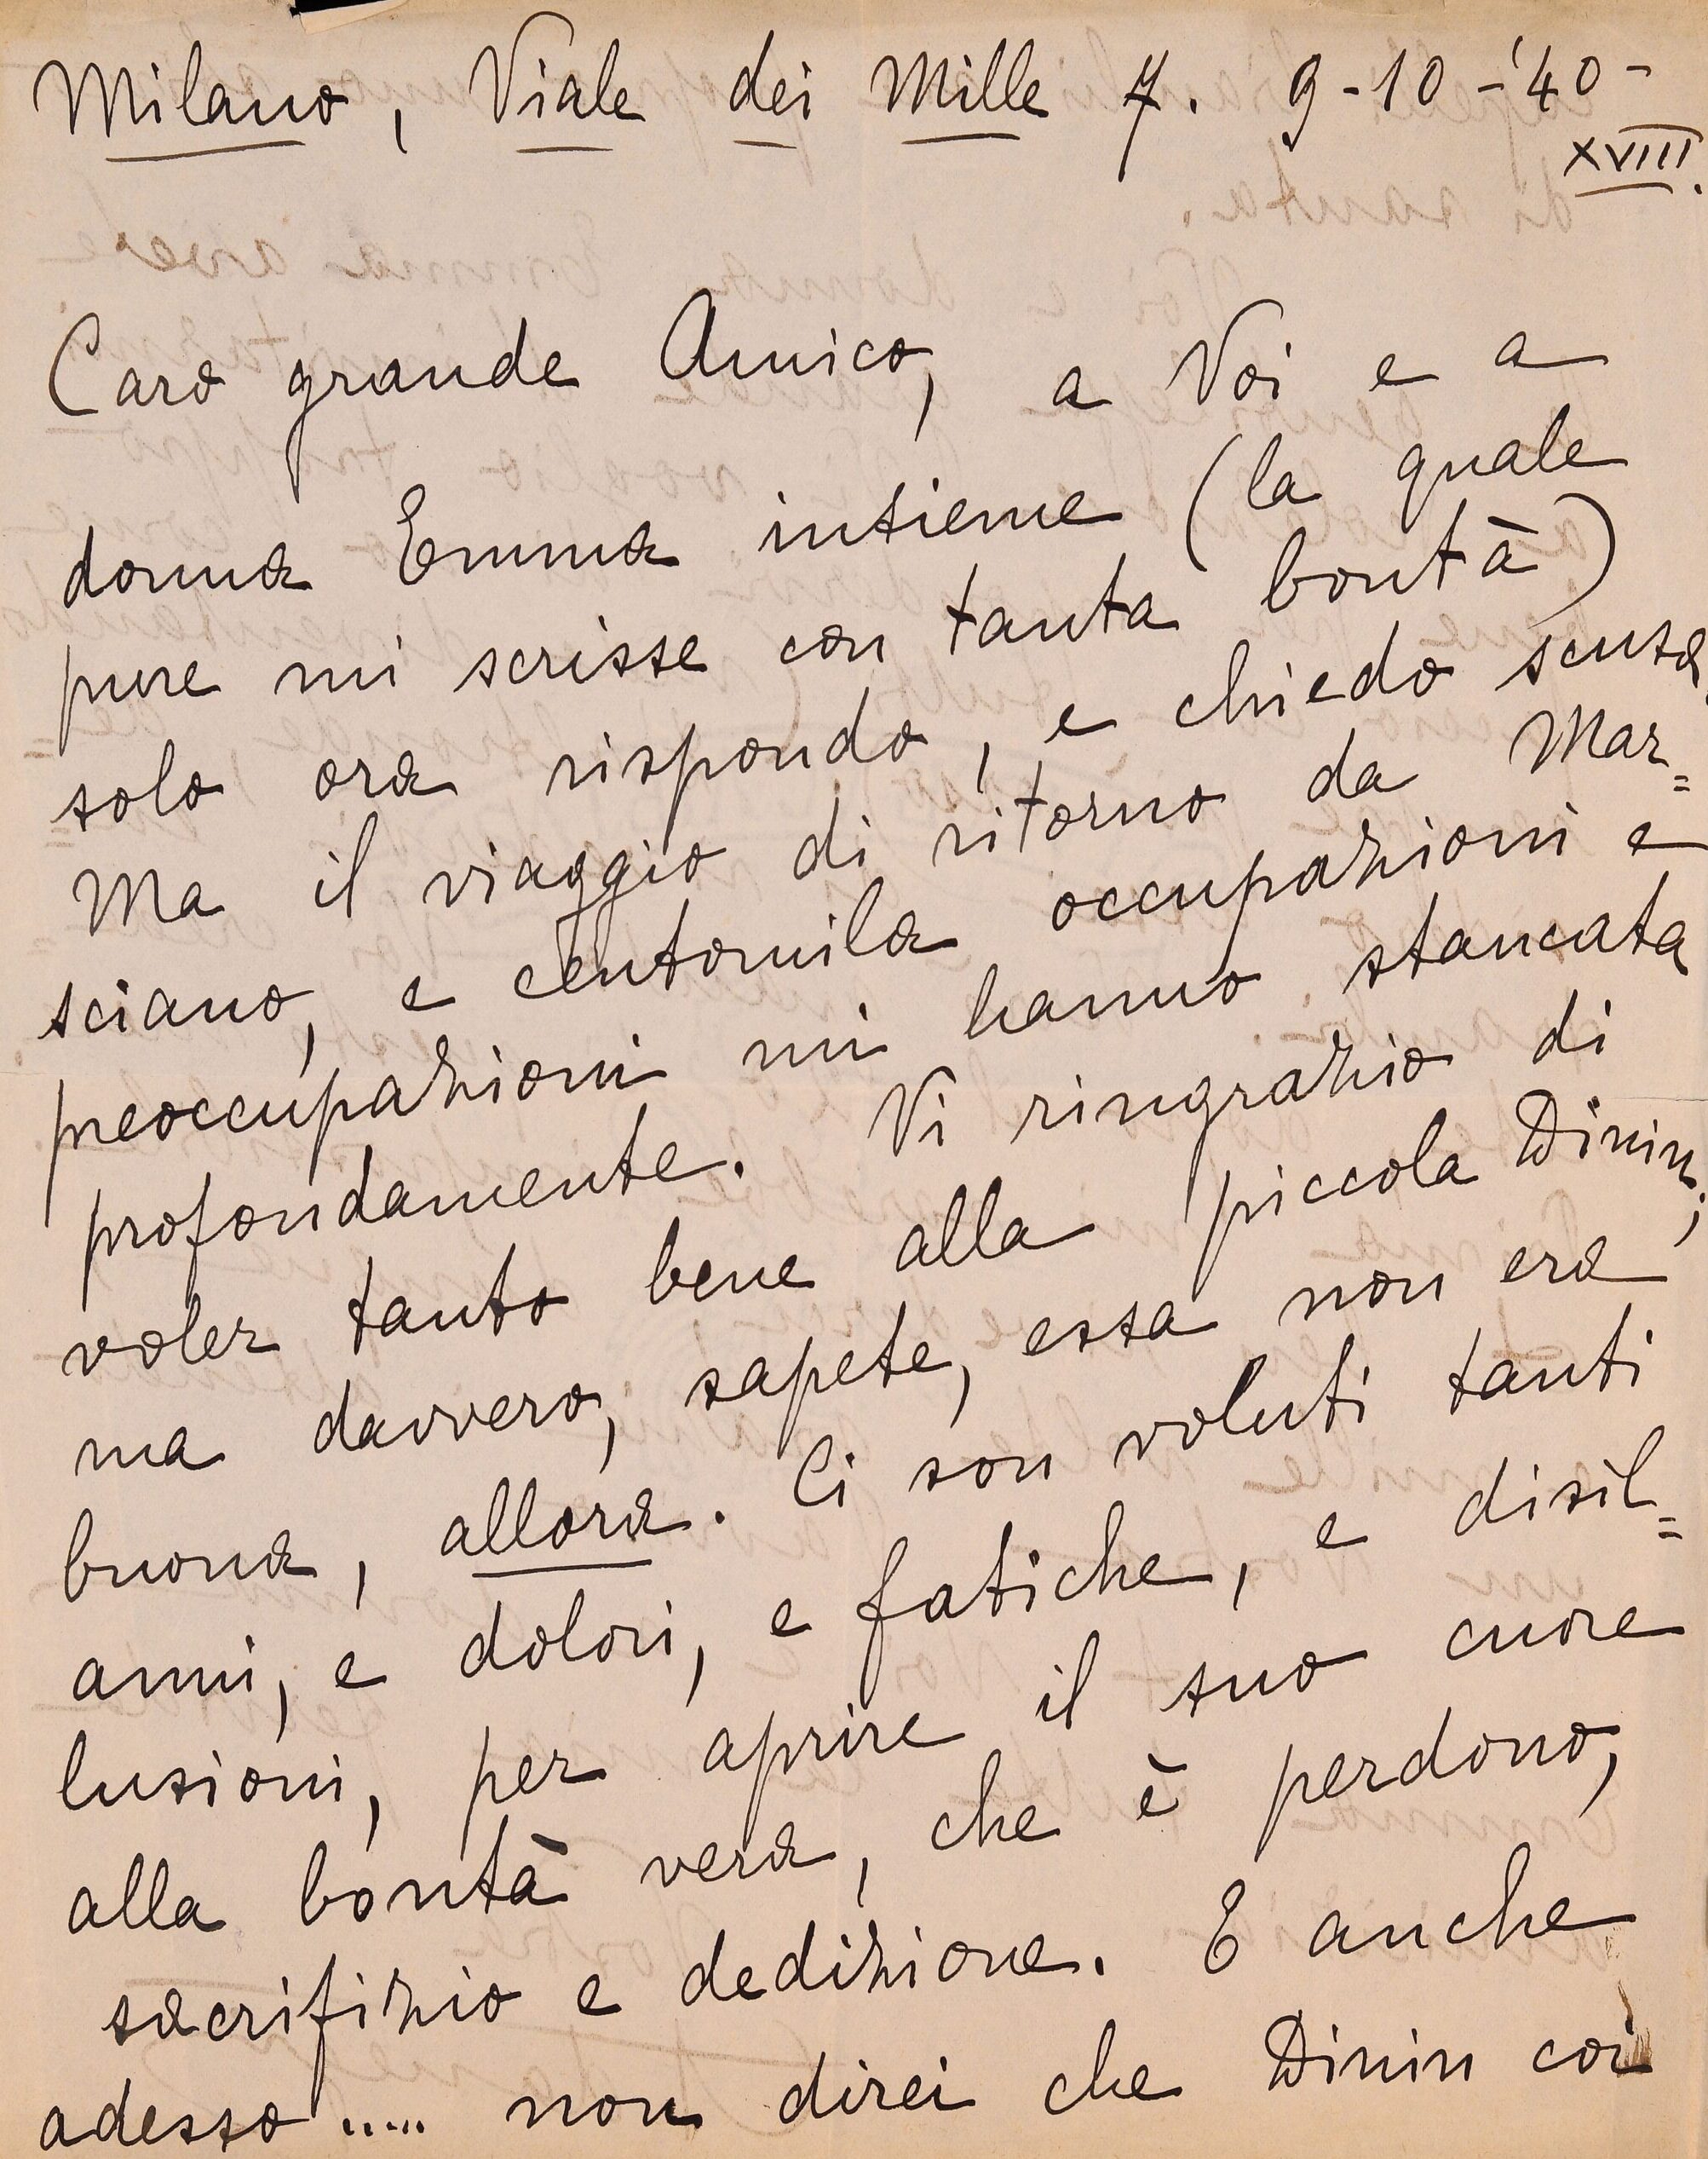 Milano, Viale dei Mille 7. 9-10-'40-
XVIII.
Caro grande Amico, a Voi e a
donna Emma insieme (la quale
pure mi scrisse con tanta bontà)
solo ora rispondo, e chiedo scusa.
Ma il viaggio di ritorno da Mar=
sciano, e centomila occupazioni e
preoccupazioni mi hanno stancata
profondamente. Vi ringrazio di
voler tanto bene alla piccola Dinin;
ma davvero, sapete, essa non era
buona, allora. Ci son voluti tanti
anni, e dolori, e fatiche, e disil=
lusioni, per aprire il suo cuore
alla bontà vera, che è perdono,
sacrifizio e dedizione. E anche
adesso ..... non direi che Dinin coi